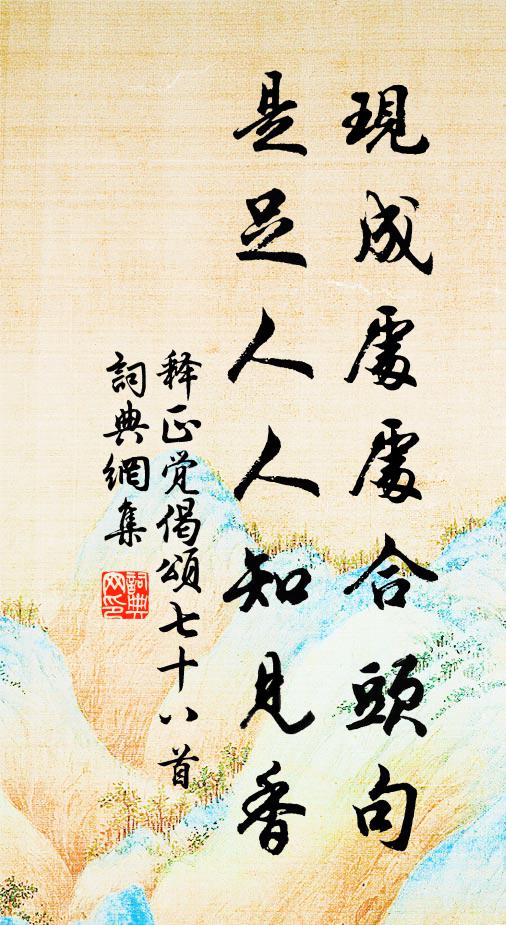 現成處處合頭句
是足人人知見香
释正觉偈頌七十八首
詞典網集
詞典網印